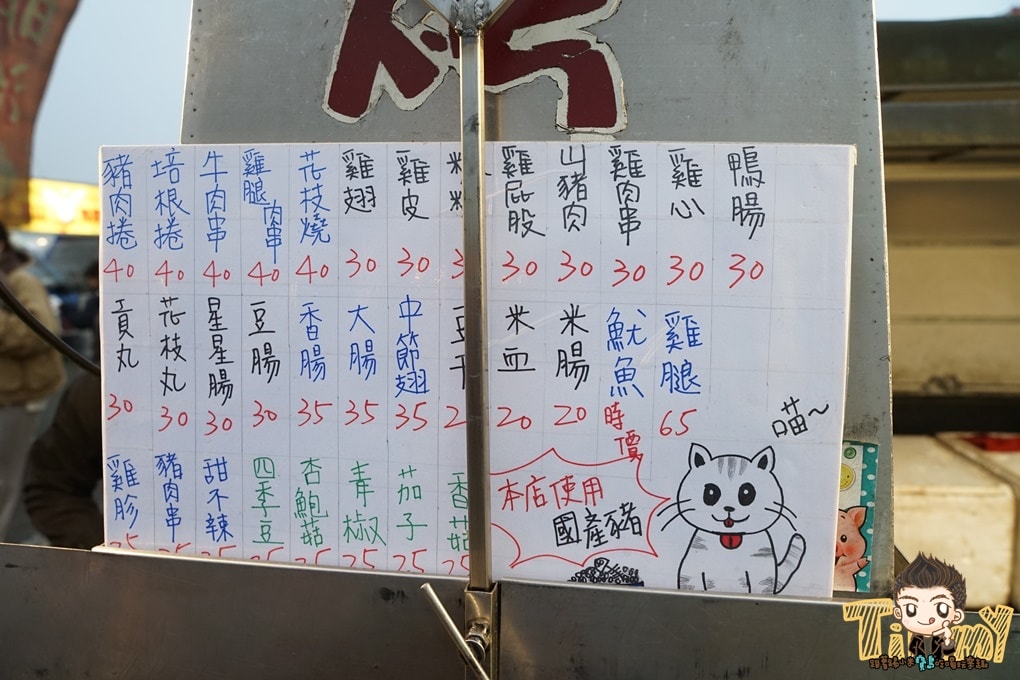 豬肉捲 40
培根捲 40
牛肉串 40
雞腿肉串 40
花枝燒 40
雞翅 30
雞皮 30
雞屁股 30
山豬肉 30
雞肉串 30
雞心 30
鴨腸 30
貢丸 30
花枝丸 30
星星腸 30
豆腸 30
香腸 35
大腸 35
中節翅 35
豆干
米血 20
米腸 20
魷魚 時價
雞腿 65
雞胗 25
豬肉串 25
甜不辣 25
四季豆 25
杏鮑菇 25
青椒 25
茄子 25
香菇 25
本店使用
國產豬
喵~
Timmy